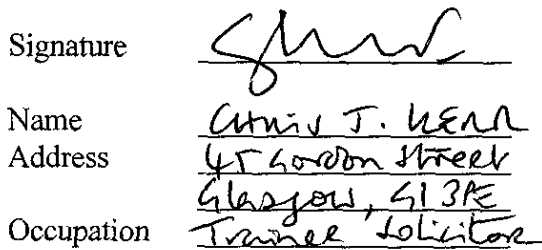 Signature
Name Chris J. Kerr
Address 45 Gordon Street
Glasgow, G1 3PE
Occupation Trainee Solicitor